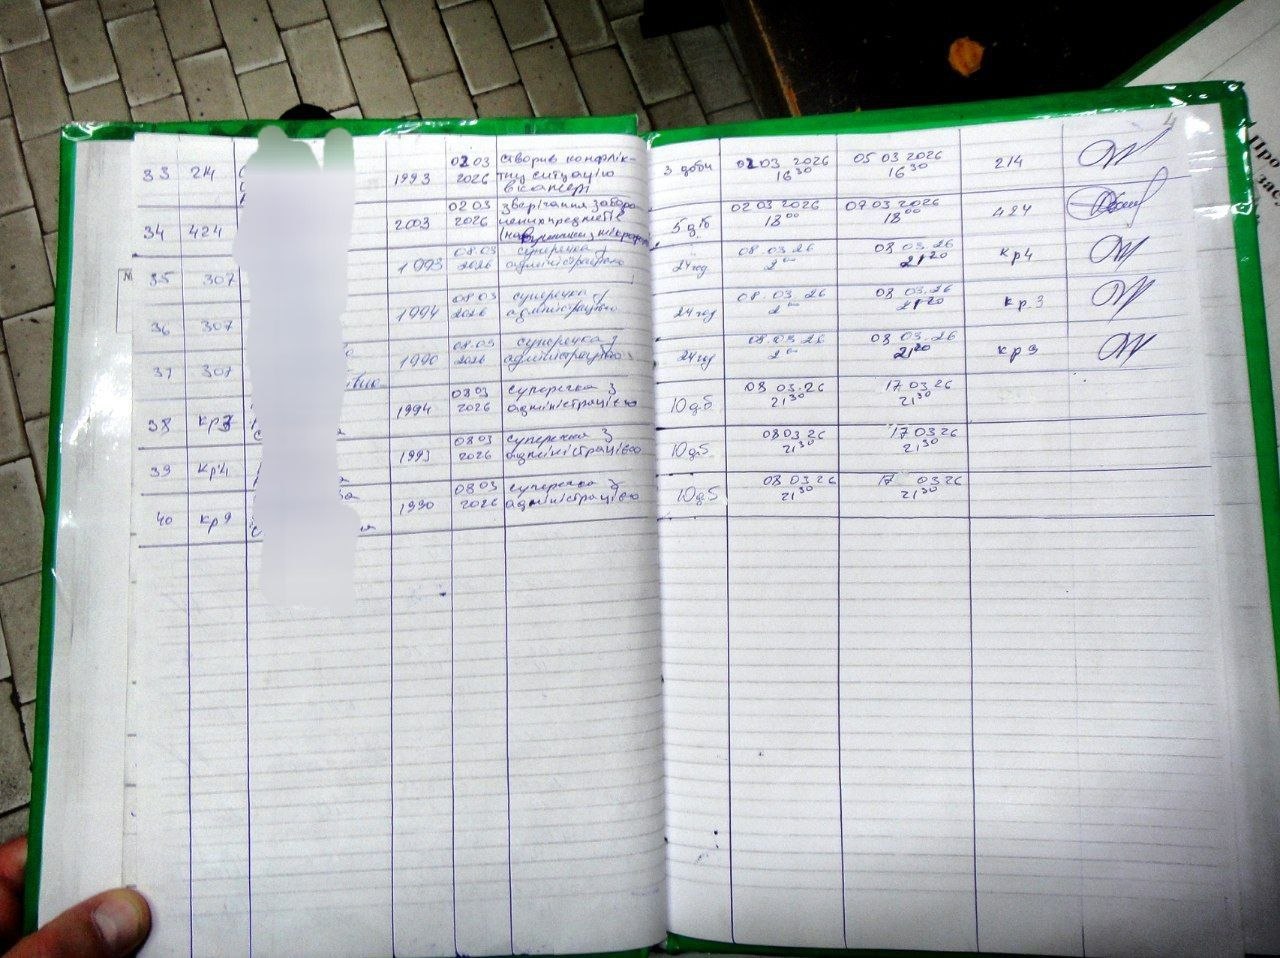 4
33 214 1993 02 03 2026 створив конфлік-
тну ситуацію
в камері
3 доби 02 03 2026 16 30 05 03 2026 16 30 214
34 424 2003 02 03 2026 зберігання заборо
нених предметів
5 діб 02 03 2026 18 00 07 03 2026 18 00 424
35 307 1993 08.03 2026 суперечка з
адміністрацією
24 год 08.03.26 2 00 08 03.26 21 20 кр 4
36 307 1994 08.03 2026 суперечка з
адміністрацією
24 год 08.03.26 2 00 08 03.26 21 20 кр 3
37 307 1990 08.03 2026 суперечка з
адміністрацією
24 год 08.03.26 2 00 08 03.26 21 20 кр 9
38 1994 08 03 2026 суперечка з
адміністрацією
10 діб 08 03.26 21 30 17 03 26 21 30
39 кр 4 1993 08 03 2026 суперечка з
адміністрацією
10 діб 08 03 26 21 30 17 03 26 21 30
40 кр 9 1990 08 03 2026 суперечка з
адміністрацією
10 діб 08 03 26 21 30 17 03 26 21 30